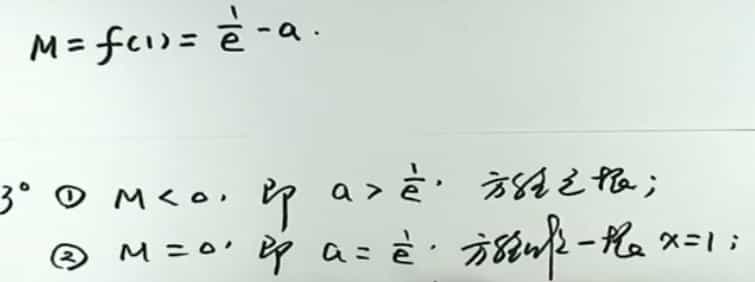 M = f(1) = 1/e - a.
3° ① M < 0, 即 a > 1/e. 方程无根;
② M = 0, 即 a = 1/e. 方程唯一根 x=1;